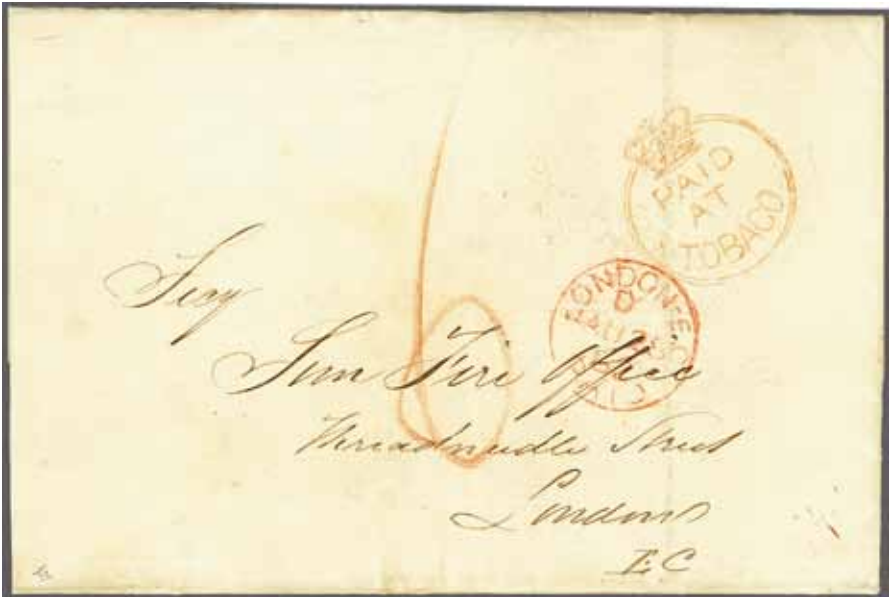 PAID
AT
TOBAGO
LONDON E.C
D
PAID
6
Secy
Sun Fire Office
Threadneedle Street
London
E C